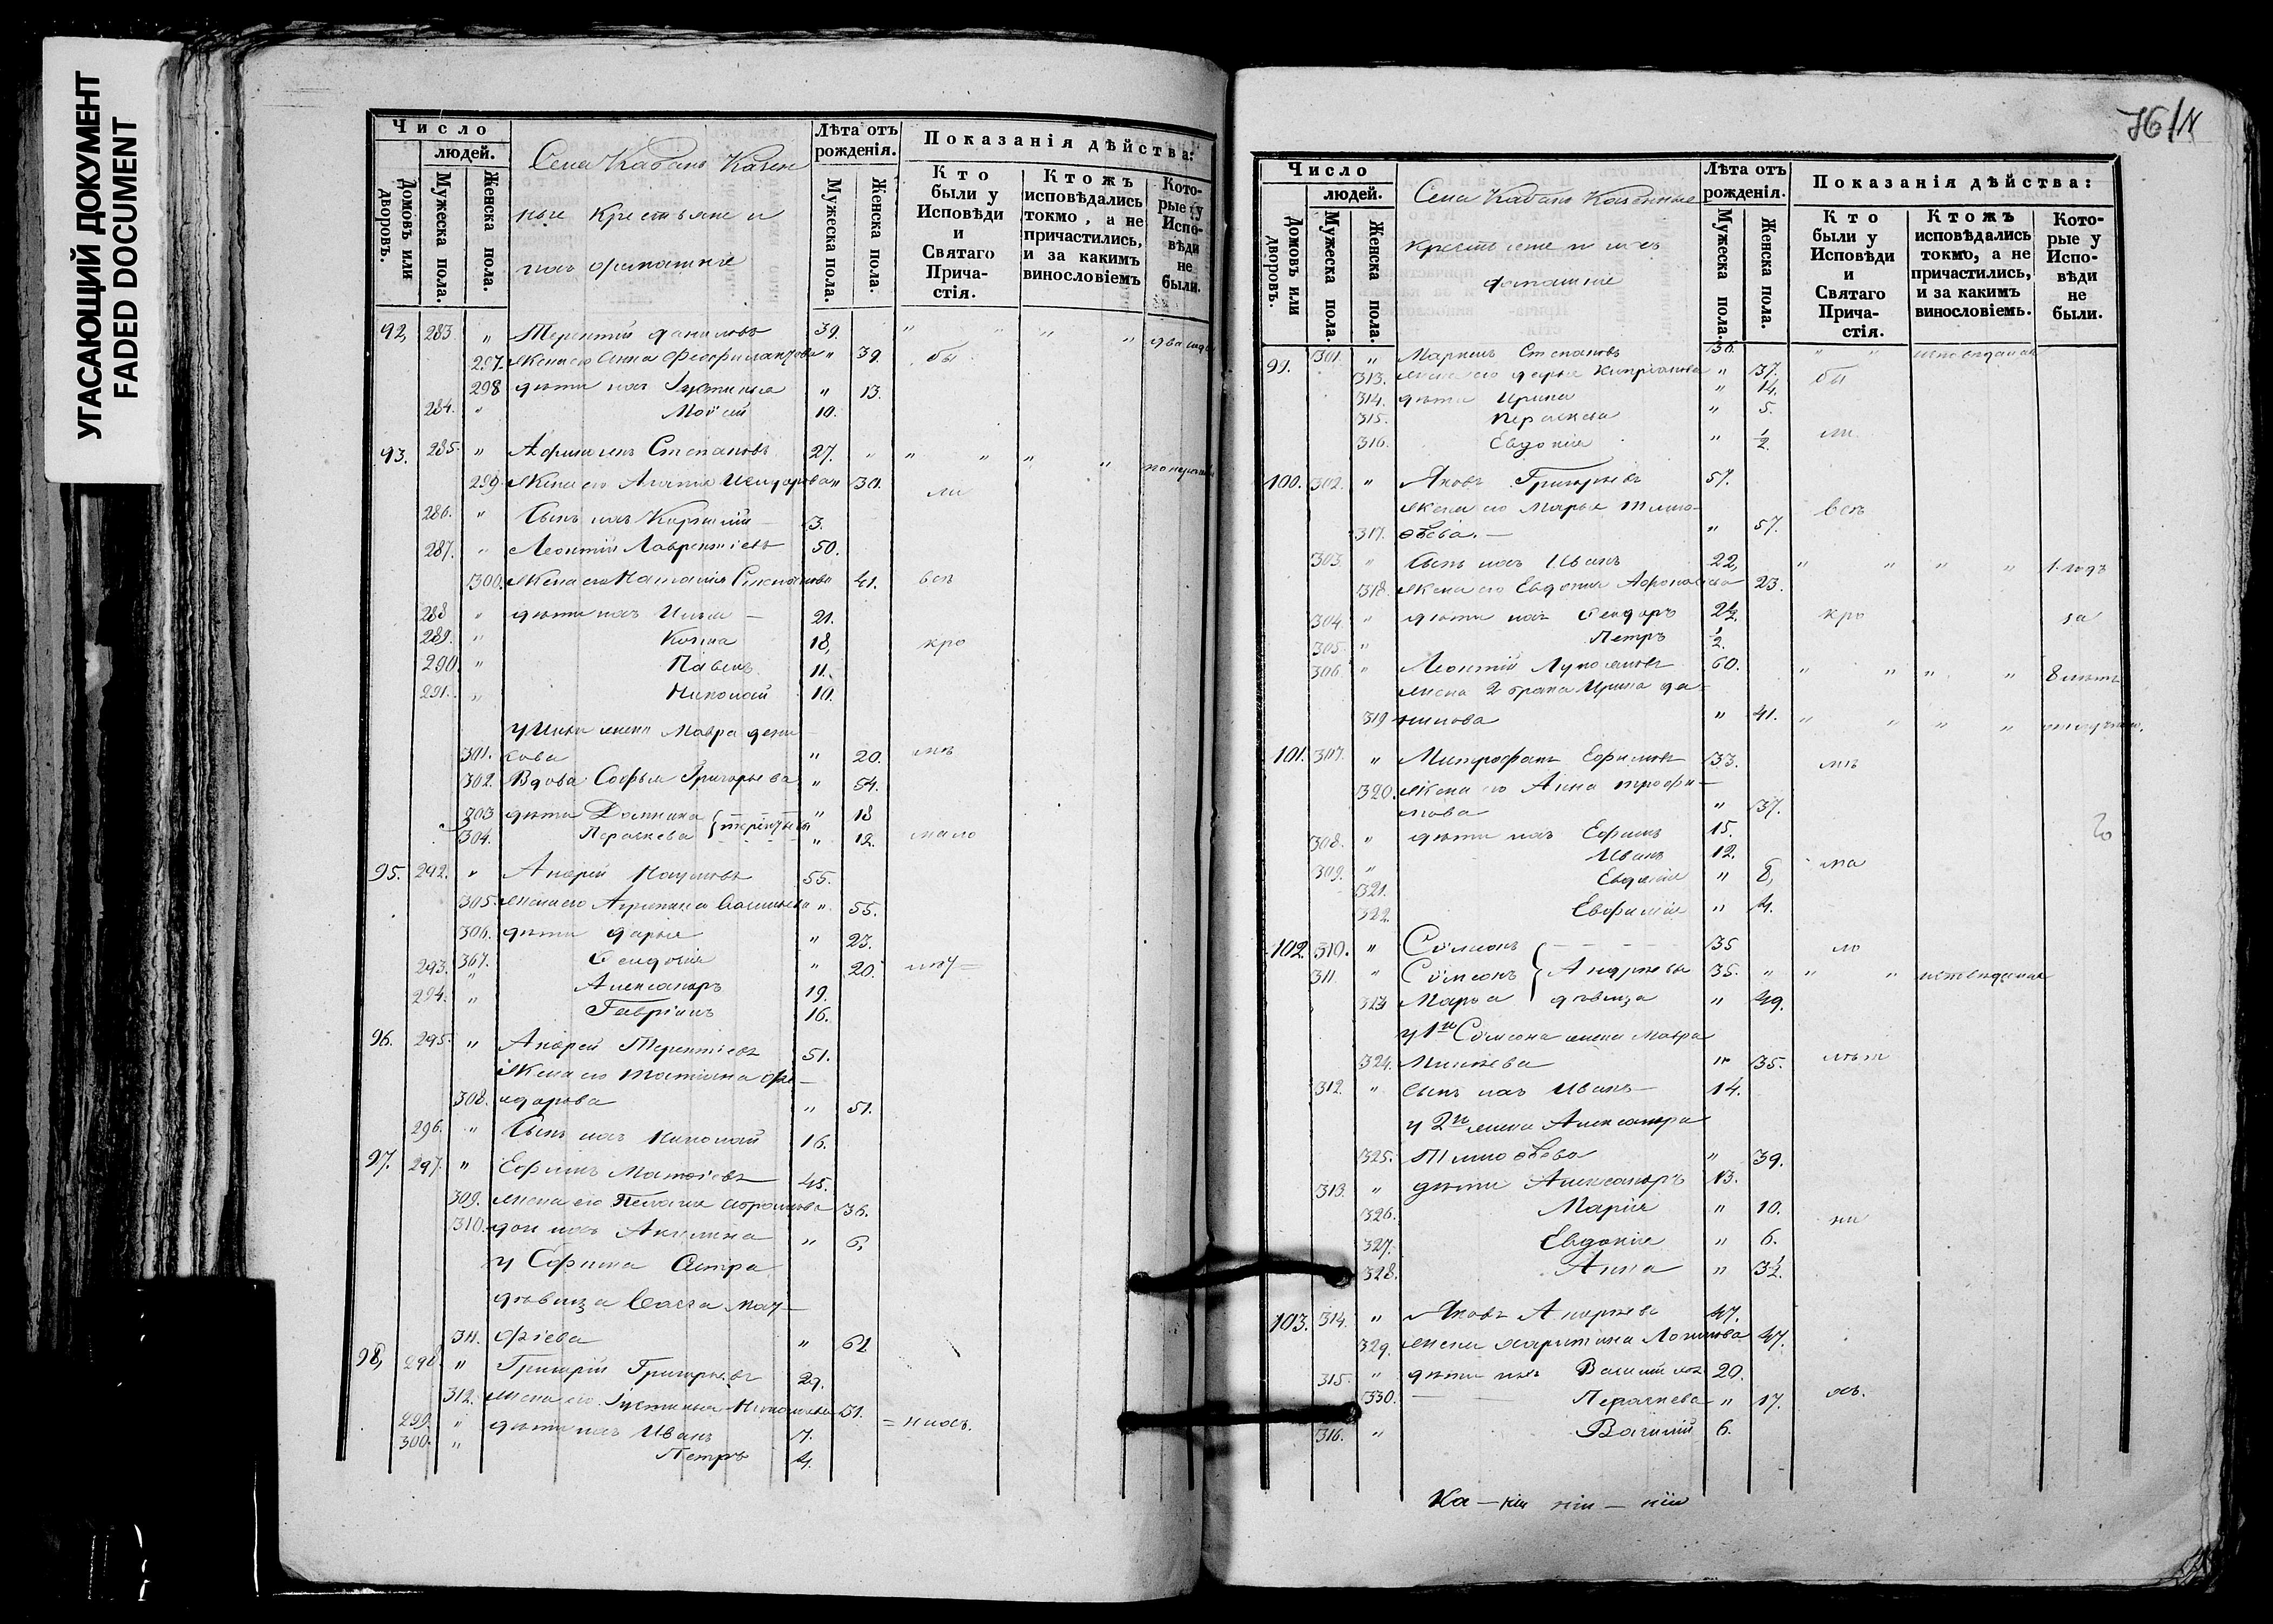 УГАСАЮЩИЙ ДОКУМЕНТ
FADED DOCUMENT
Число
людей.
Домовъ или дворовъ.
Мужеска пола.
Женска пола.
Села Кабанъ Казен
ные крестьяне и
ихъ домашніе
Лѣта отъ рожденія.
Мужеска пола.
Женска пола.
Показанія дѣйства:
Кто были у Исповѣди и Святаго Прича-стія.
Ктожъ исповѣдались токмо, а не причастились, и за какимъ винословіемъ
Кото-рые у Испо-вѣди не были.
92, 283. " Терентій Даниловъ 39. " " " " два года
297. Жена его Анна " 39. бы
298 дѣти ихъ Іустинья " 13.
284. " Моѵсей 10.
93. 285. " Степановъ 27. " " " " "
299. Жена его " 30. ли
286. " Сынъ ихъ 3.
287. " Леонтій Лаврентіевъ 50.
300. Жена его Наталія Степанова 41. всѣ
288 " дѣти ихъ Илья — 21.
289. " Козма 18, кро
290 " Павелъ 11.
291. " Николай 10.
у Ильи жена Мавра Дени
301. сова " 20. мѣ
302. Вдова Софья Григорьева " 54.
303 дѣти Домника " 18
304. Параскева Терентьевы " 12. мало
95. 292. " Андрей Наумовъ 55.
305. Жена его Агрипина Васильева " 55.
306. дѣти Дарья " 23.
293. 307. Феодосія " 20. лѣт=
294. " Александръ 19.
" Гавріилъ 16.
96. 295. " Андрей Терентіевъ 51.
Жена его Татіана Фе—
308. одорова " 51.
296. " Сынъ ихъ Николай 16.
97. 297. " Ефимъ Матѳіевъ 45.
309. Жена его Пелагія Абрамова 36.
310. дочь ихъ Акилина " 6,
у Ефима Сестра
дѣвица Васса Мат—
311. фіева " 62
98, 298 " Григорій Григорьевъ 29.
312. Жена его Іустинья 31.
299. " дѣти ихъ Иванъ 7. = нихъ.
300. " Петръ 4.
76/
Число
людей.
Домовъ или дворовъ.
Мужеска пола.
Женска пола.
Села Кабанъ Казенные
крестьяне и ихъ
домашніе
Лѣта отъ рожденія.
Мужеска пола.
Женска пола.
Показанія дѣйства:
Кто были у Исповѣди и Святаго Прича-стія.
Ктожъ исповѣдались токмо, а не причастились, и за какимъ винословіемъ.
Кото-рые у Испо-вѣди не были.
99. 301. " Степановъ 36. " "
313. Жена его Дарья Кипріанова " 37. бы
314. дѣти Ирина " 14.
315. Параскева " 5.
316. Евдокія " 1/2 ли
100. 302. " Яковъ Григорьевъ 57.
Жена его Марья Тимо-
317. ѳѣева. — " 57. всѣ
303. " Сынъ ихъ Иванъ 22, " " " " 1 годъ
318. Жена его Евдокія 23.
304. " дѣти ихъ Феодоръ 2 1/2. кро за
305. " Петръ 1/2.
306. " Леонтій 60. " " " " 8 лѣтъ
Жена 2 брака Ирина Да-
319 нилова " 41. " " " "
101. 307. " Митрофанъ Ефимовъ 33. мѣ
320. Жена его Анна Трофи—
мова " 37.
308. " дѣти ихъ Ефимъ 15.
309. " Иванъ 12. ма
321. Евдокія " 8,
322. Евфимія " 4.
102. 310. " Сѵмеонъ 35 ло
311. " Сѵмеонъ Андреевы 35. " " "
323 Марѳа дѣвица " 49.
у 1го Сѵмеона жена Мавра
324. Минѣева " 35. лѣт
312. " Сынъ ихъ Иванъ — 14.
у 2го жена Александра
325. Тимоѳѣева " 39.
313. " дѣти Александръ 13.
326. Марія " 10. ни
327. Евдокія " 6.
328. Анна " 3 1/2.
103. 314. " Яковъ Андреевъ 47.
329. Жена Харитина Логинова 47.
315. " дѣти ихъ 20.
330. Параскева " 17. хъ.
316. " Василій 6.